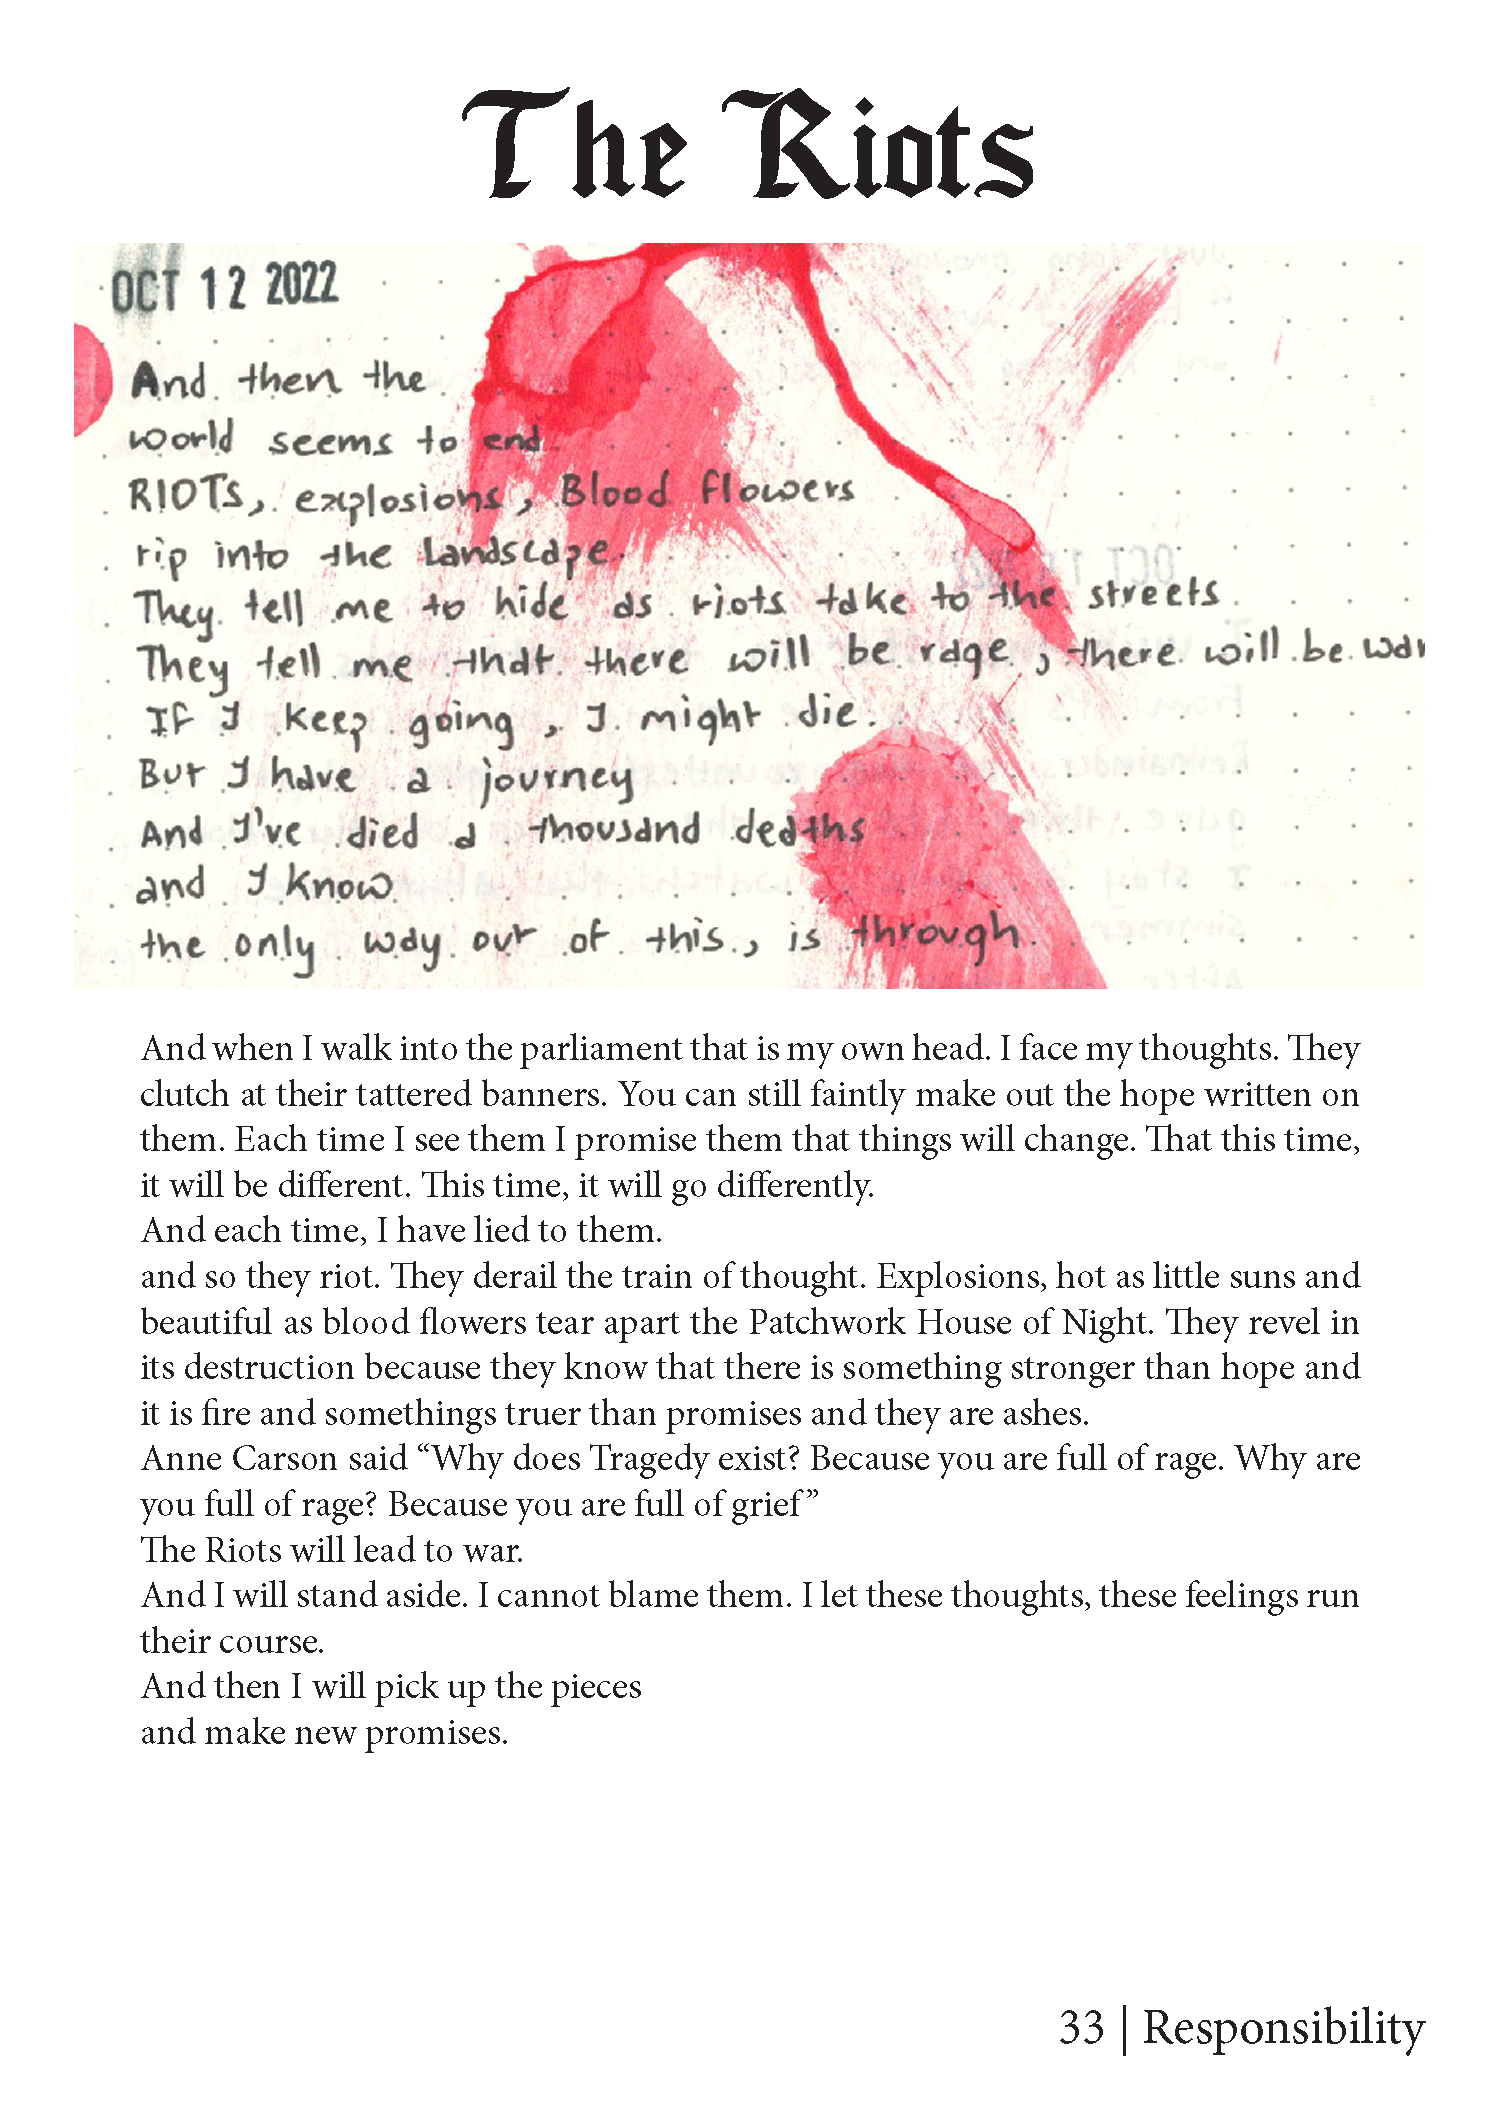 The Riots
OCT 12 2022
And then the
world seems to end
RIOTS, explosions, Blood flowers
rip into the landscape.
They tell me to hide as riots take to the streets.
They tell me that there will be rage, there will be war
If I keep going, I might die.
But I have a journey
And I've died a thousand deaths
and I know
the only way out of this, is through.
And when I walk into the parliament that is my own head. I face my thoughts. They
clutch at their tattered banners. You can still faintly make out the hope written on
them. Each time I see them I promise them that things will change. That this time,
it will be different. This time, it will go differently.
And each time, I have lied to them.
and so they riot. They derail the train of thought. Explosions, hot as little suns and
beautiful as blood flowers tear apart the Patchwork House of Night. They revel in
its destruction because they know that there is something stronger than hope and
it is fire and somethings truer than promises and they are ashes.
Anne Carson said “Why does Tragedy exist? Because you are full of rage. Why are
you full of rage? Because you are full of grief”
The Riots will lead to war.
And I will stand aside. I cannot blame them. I let these thoughts, these feelings run
their course.
And then I will pick up the pieces
and make new promises.
33 | Responsibility